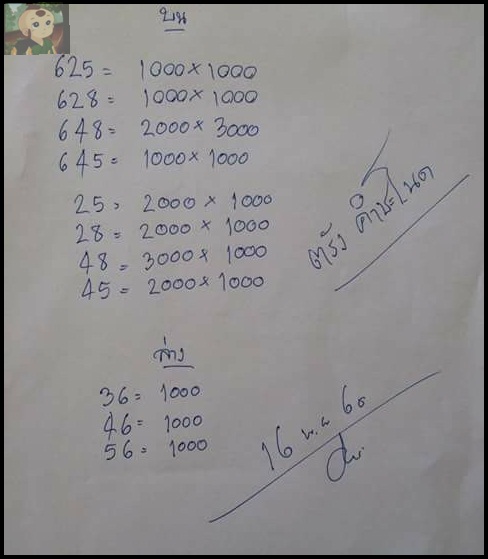 บน
625 = 1000 × 1000
628 = 1000 × 1000
648 = 2000 × 3000
645 = 1000 × 1000
25 = 2000 × 1000
28 = 2000 × 1000
48 = 3000 × 1000
45 = 2000 × 1000
ตรัง คำชะโนด
ล่าง
36 = 1000
46 = 1000
56 = 1000
16 พ.ค 60